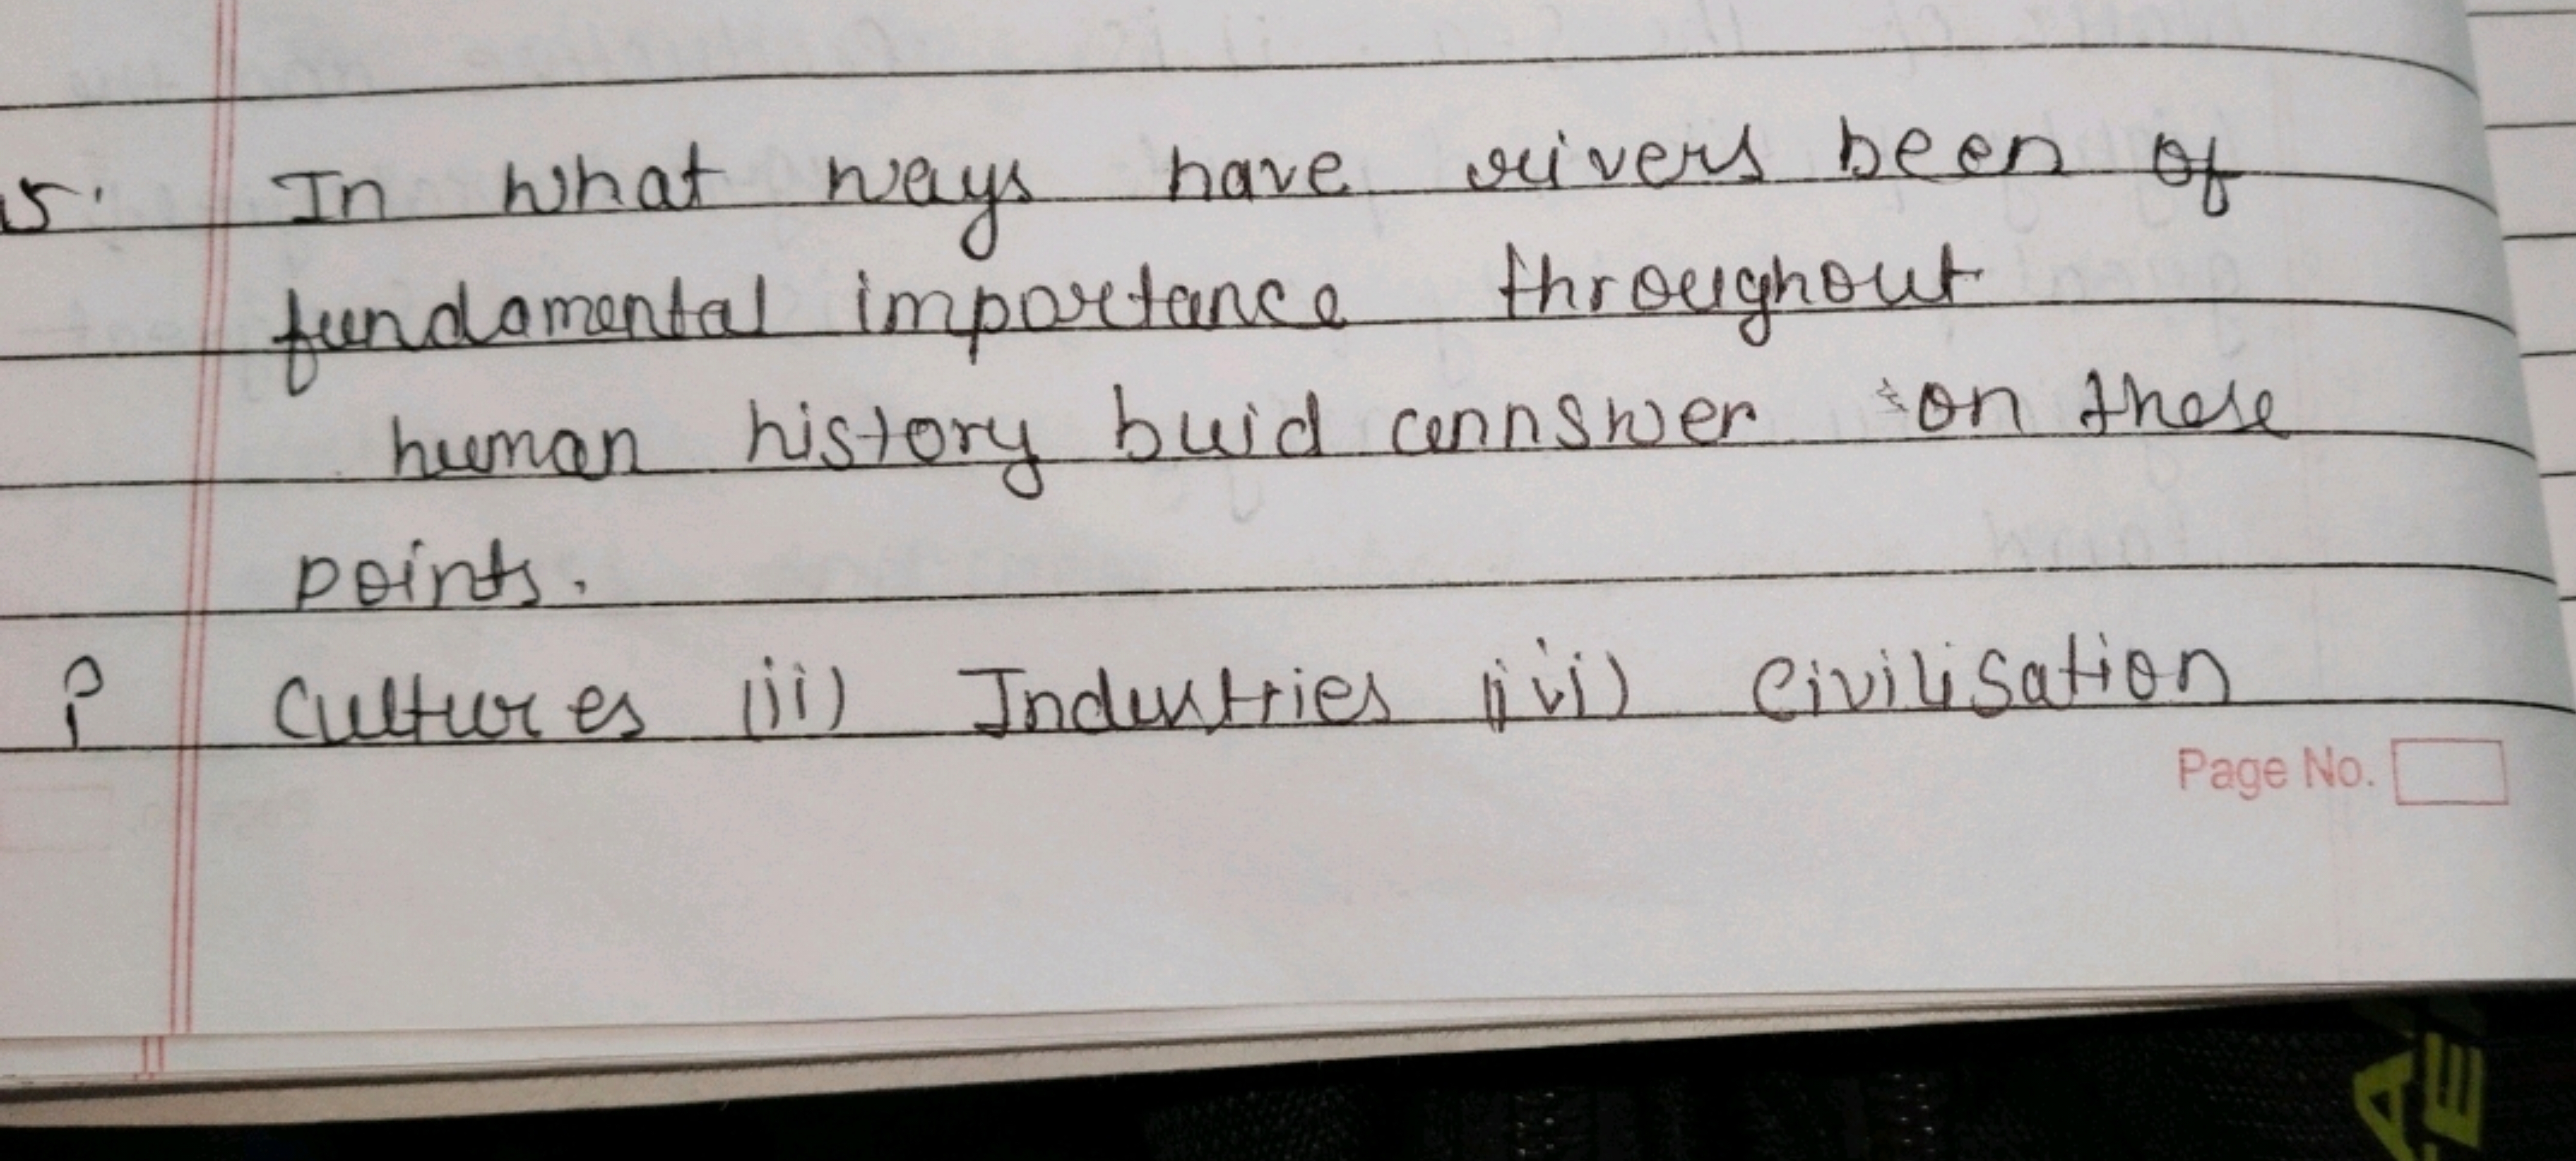 5. In what ways have rivers been of
fundamental importance throughout
human history buid annswer on these
points.
i Cultures (ii) Industries (iii) Civilisation
Page No.